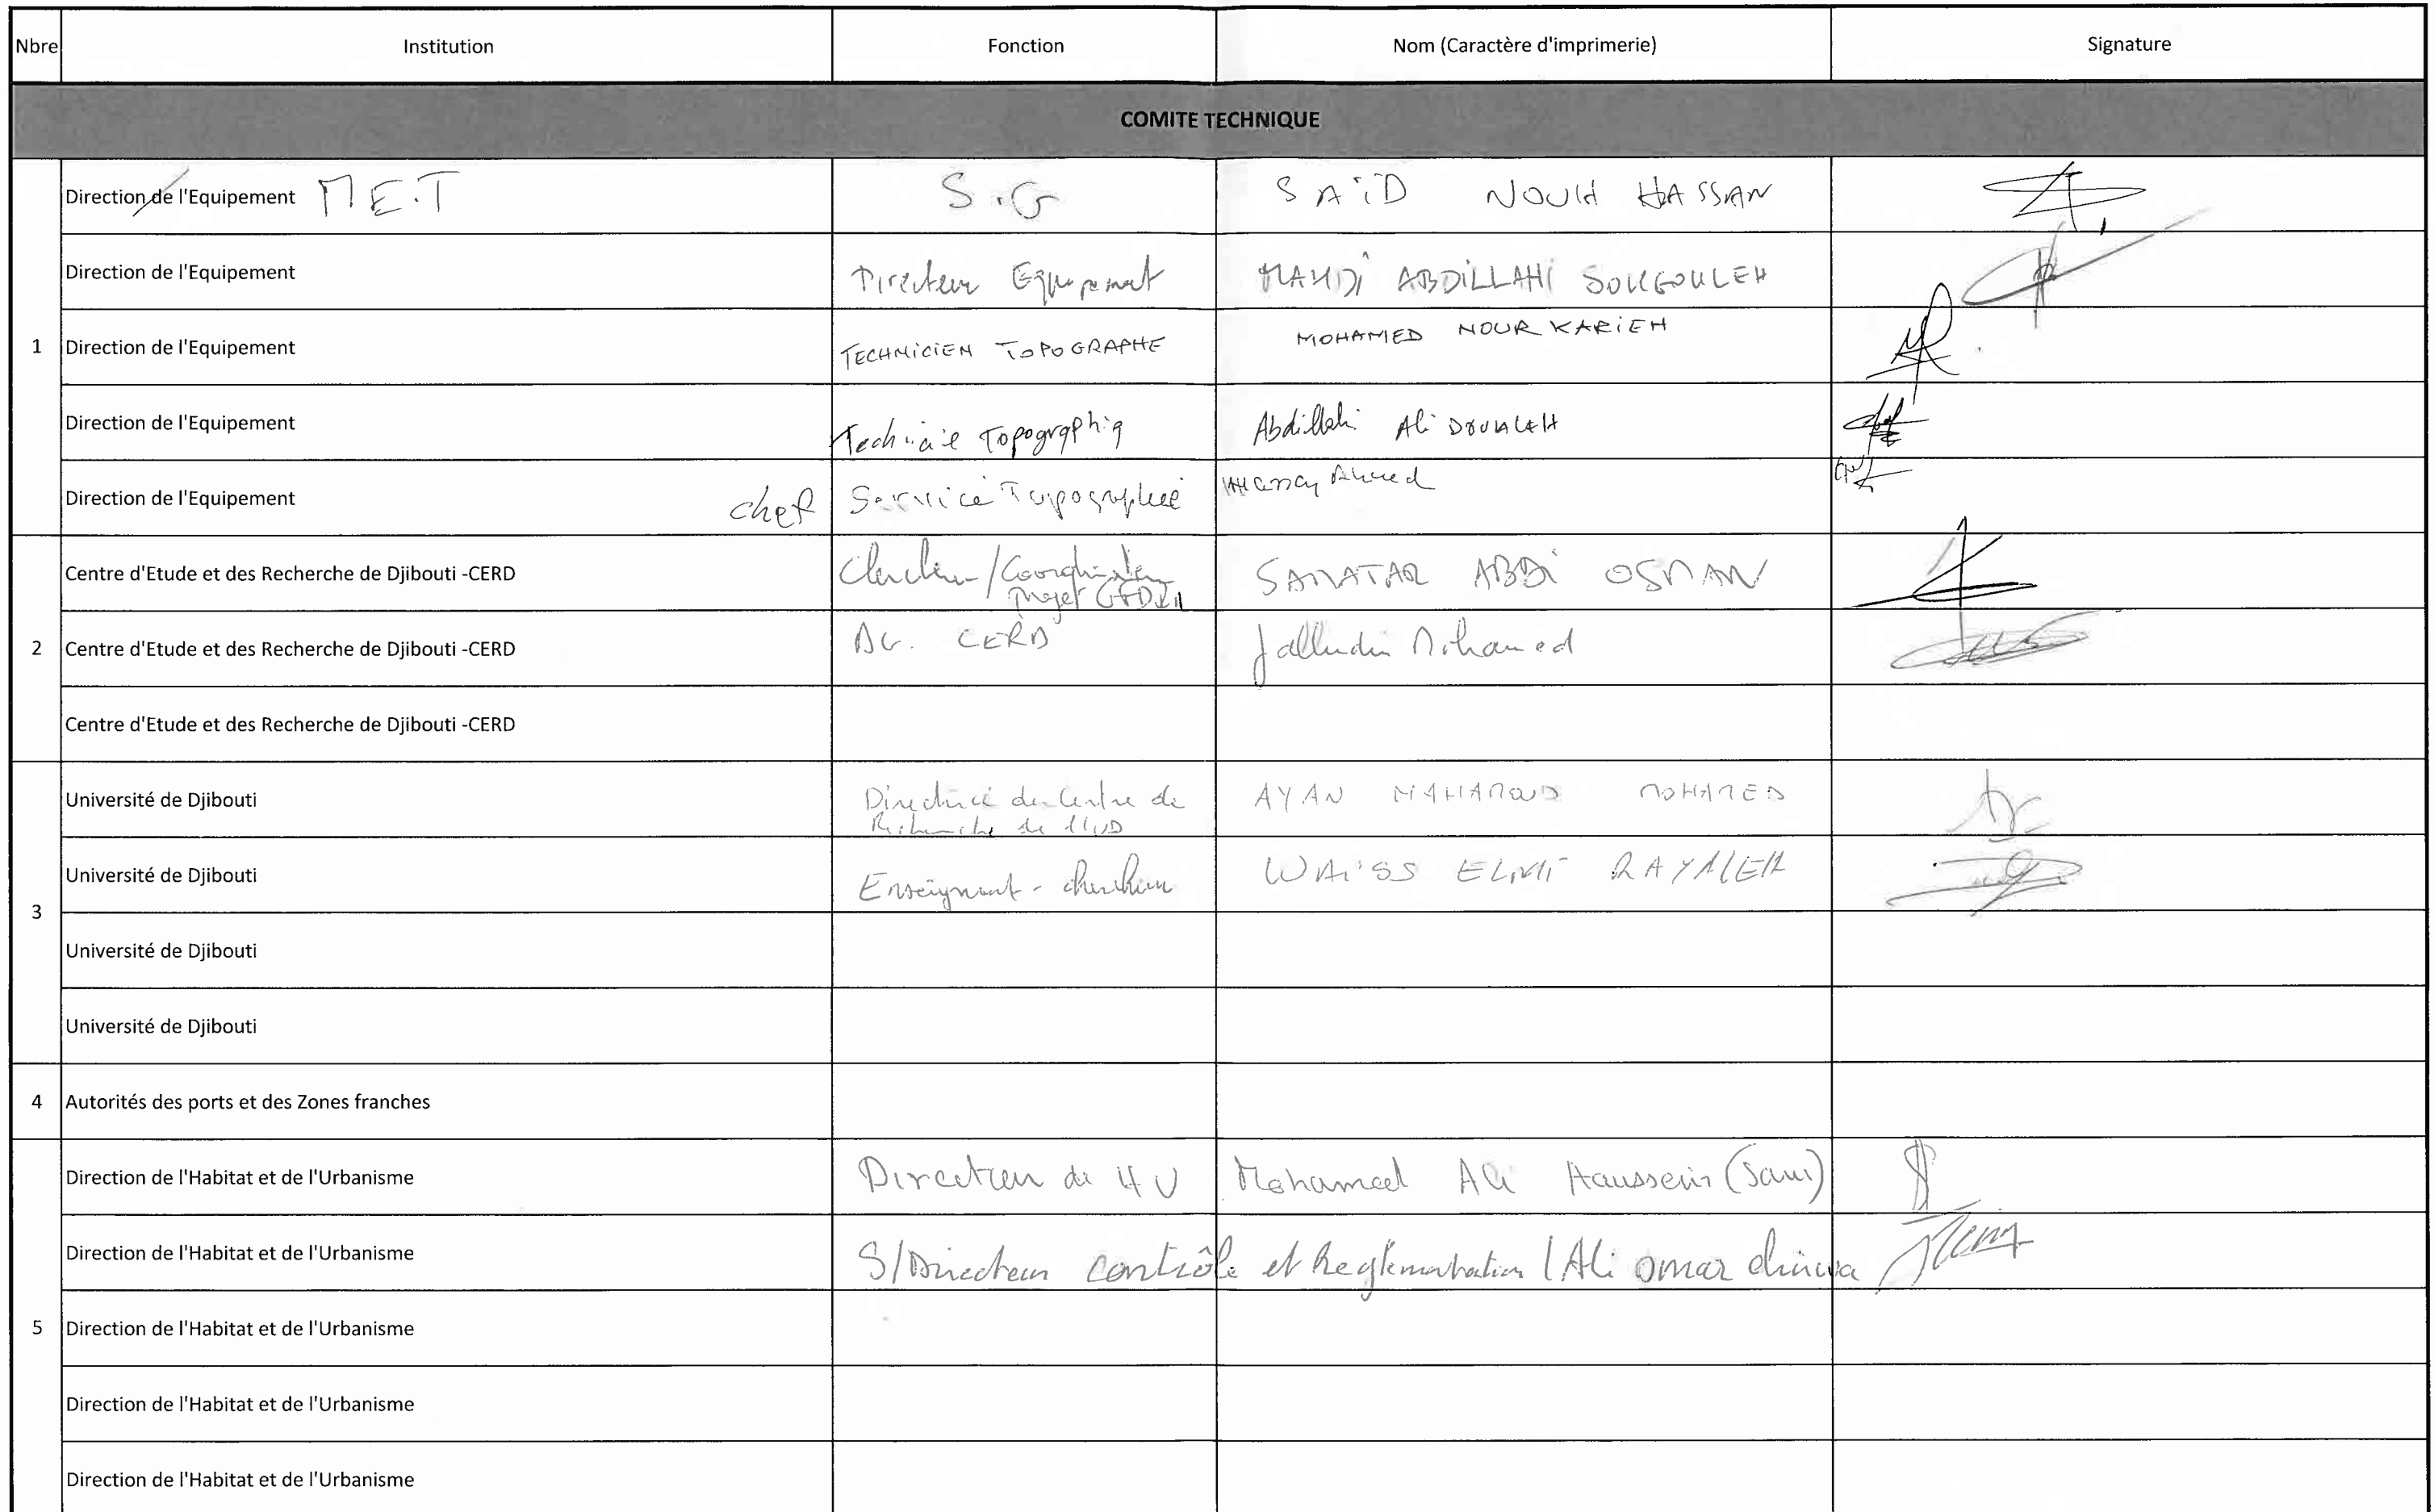 Nbre Institution Fonction Nom (Caractère d'imprimerie) Signature
COMITE TECHNIQUE
Direction de l'Equipement M.E.T S.G SAÏD NOUH HASSAN
Direction de l'Equipement Directeur Equipement MAHDI ABDILLAHI SOUGOULEH
1 Direction de l'Equipement TECHNICIEN TOPOGRAPHE MOHAMED NOUR KARIEH
Direction de l'Equipement Topographiq Abdillahi Ali DOUALEH
Direction de l'Equipement chef Service Topographie Ahmed
Centre d'Etude et des Recherche de Djibouti -CERD Chercheur/Coordinateur SAMATAR ABDI OSMAN
projet
2 Centre d'Etude et des Recherche de Djibouti -CERD DG. CERD Jalludin Mohamed
Centre d'Etude et des Recherche de Djibouti -CERD
Université de Djibouti Directrice du Centre de AYAN MAHAMOUD MOHAMED
Recherche de l'UD
Université de Djibouti Enseignant - chercheur WAISS ELMI RAYALEH
3
Université de Djibouti
Université de Djibouti
4 Autorités des ports et des Zones franches
Direction de l'Habitat et de l'Urbanisme Directeur de HU Mohamed Ali Houssein
Direction de l'Habitat et de l'Urbanisme S/Directeur contrôle et Reglementation / Ali Omar
5 Direction de l'Habitat et de l'Urbanisme
Direction de l'Habitat et de l'Urbanisme
Direction de l'Habitat et de l'Urbanisme